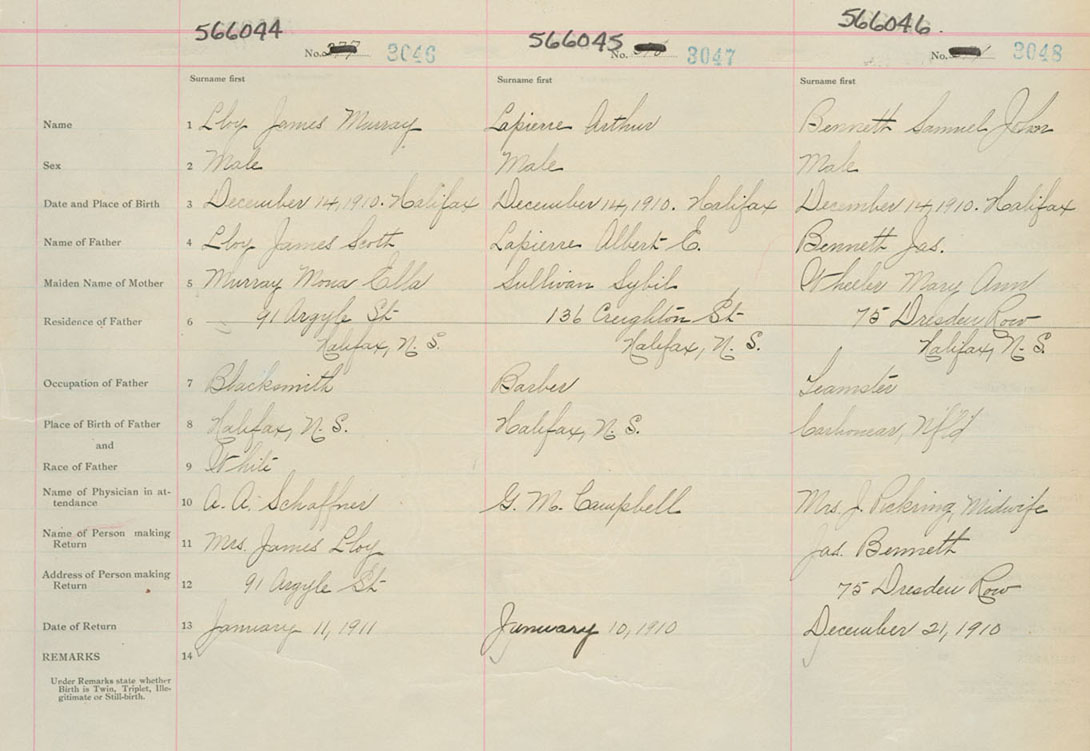 566044 566045 566046.
No. 3046 No. 3047 No. 3048
Surname first Surname first Surname first
Name 1 Lloy James Murray Lapierre Arthur Bennett Samuel John
Sex 2 Male Male Male
Date and Place of Birth 3 December 14, 1910. Halifax December 14, 1910. Halifax December 14, 1910. Halifax
Name of Father 4 Lloy James Scott Lapierre Albert E. Bennett Jas.
Maiden Name of Mother 5 Murray Mona Ella Sullivan Sybil Wheeler Mary Ann
Residence of Father 6 91 Argyle St 136 Creighton St 75 Dresden Row
Halifax, N. S. Halifax, N. S. Halifax, N. S.
Occupation of Father 7 Blacksmith Barber Teamster
Place of Birth of Father 8 Halifax, N. S. Halifax, N. S. Carbonear, Nfld
and
Race of Father 9 White
Name of Physician in at-
tendance 10 A. A. Schaffner G. M. Campbell Mrs. J. Pickring, Midwife
Name of Person making
Return 11 Mrs. James Lloy Jas. Bennett
Address of Person making
Return 12 91 Argyle St 75 Dresden Row
Date of Return 13 January 11, 1911 January 10, 1910 December 21, 1910
REMARKS 14
Under Remarks state whether
Birth is Twin, Triplet, Ille-
gitimate or Still-birth.